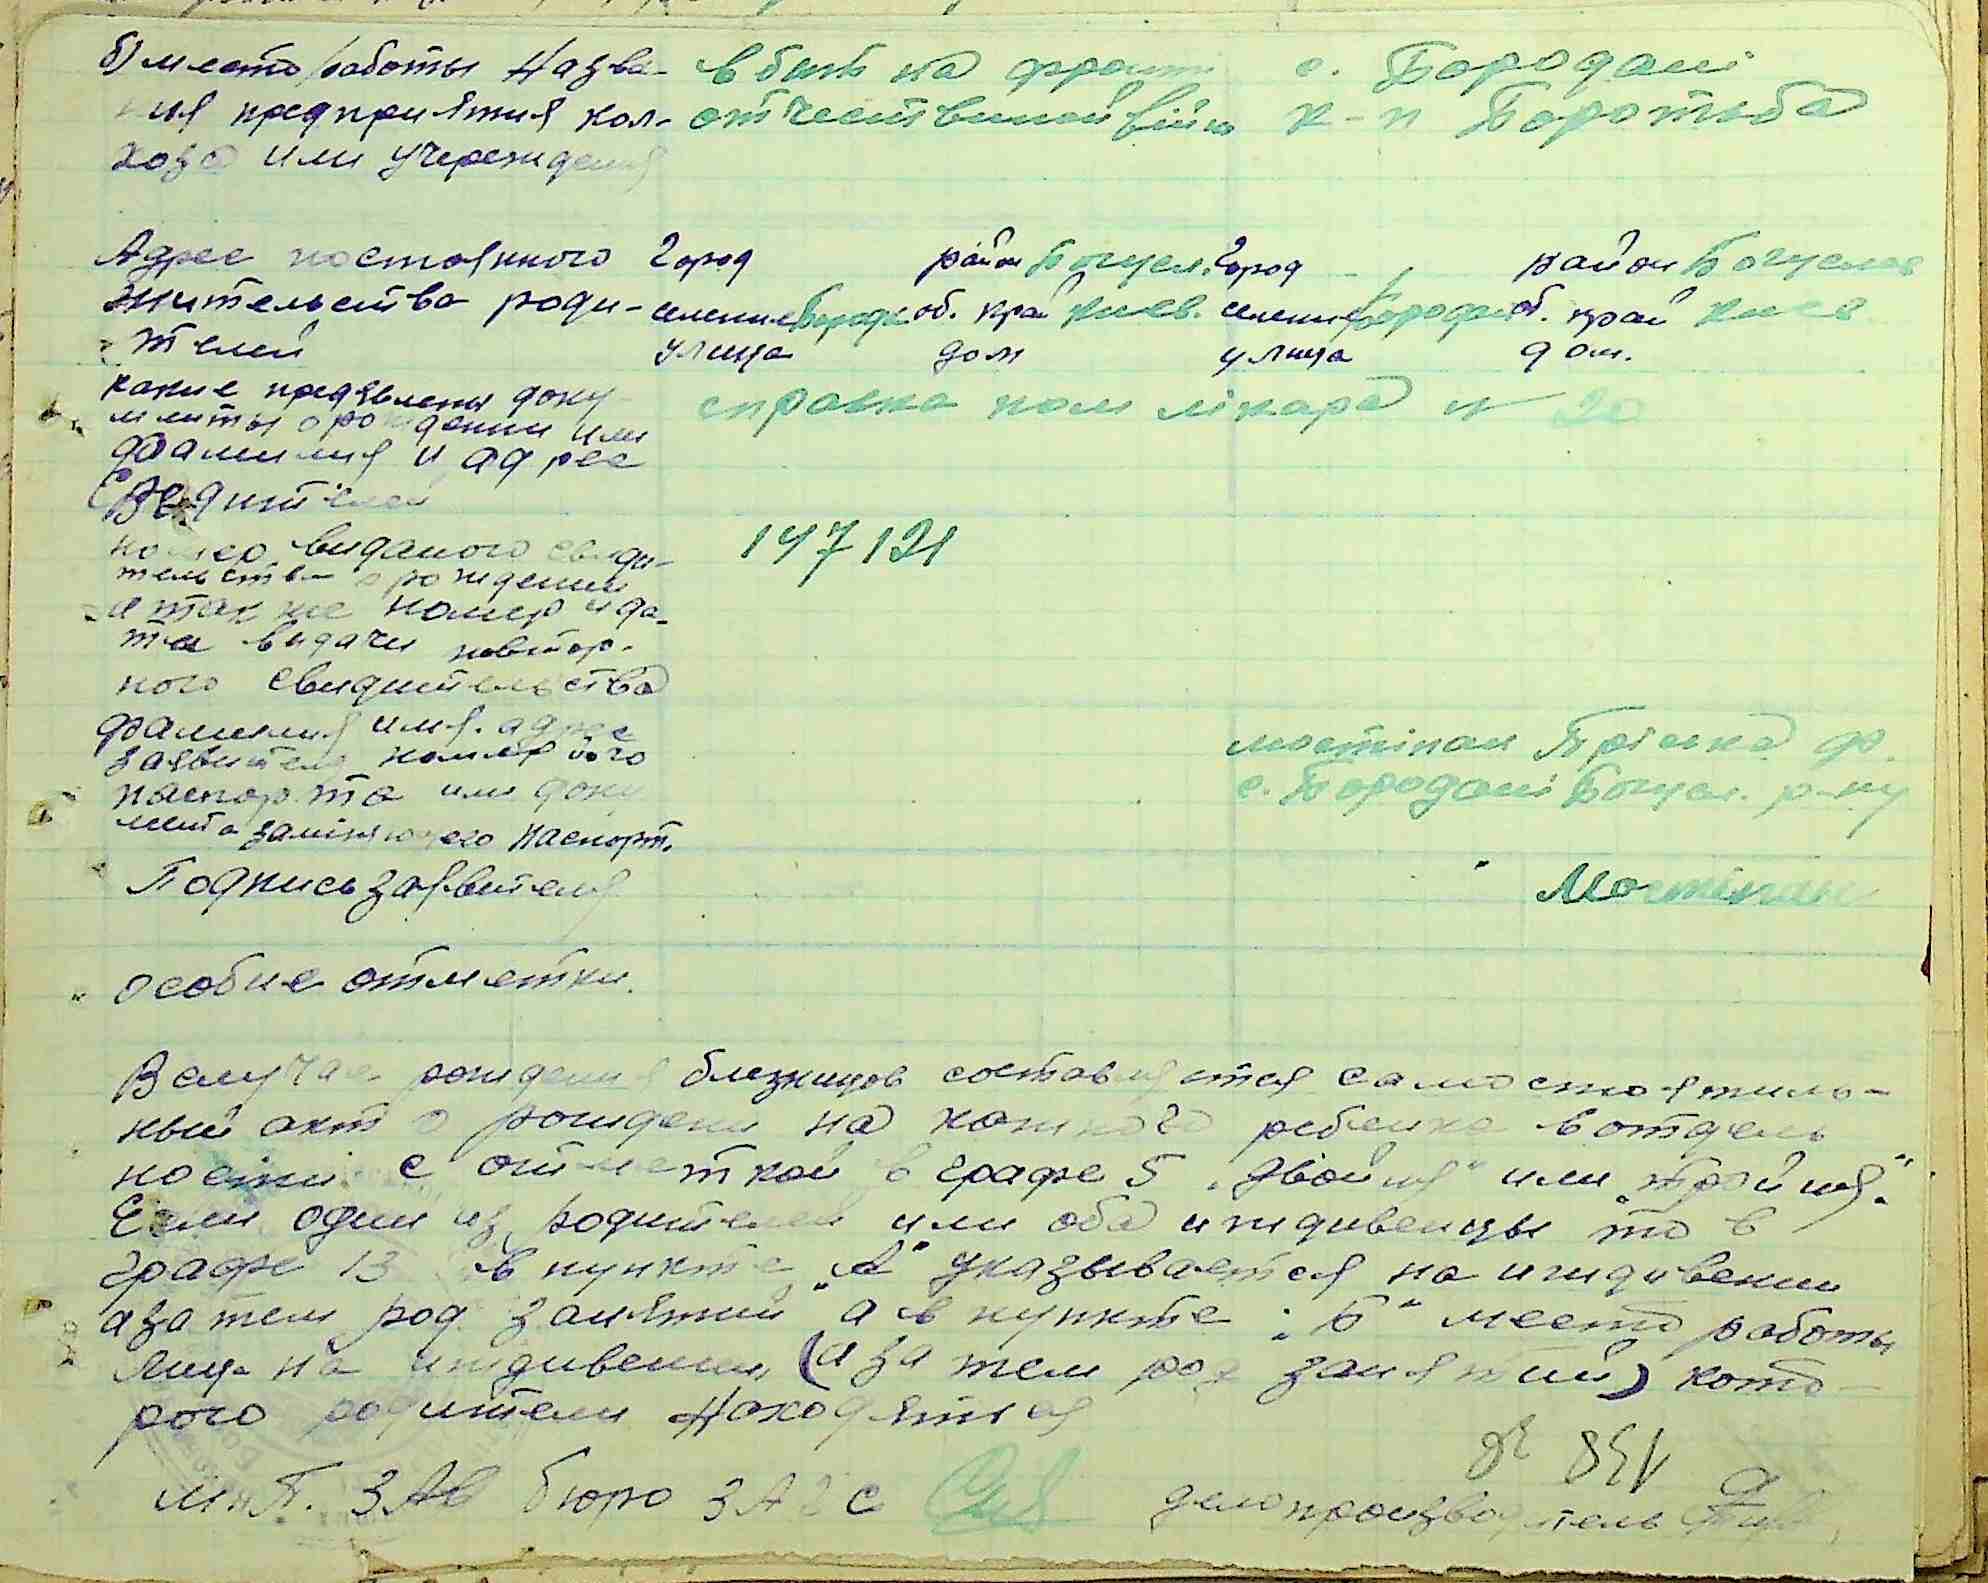 б) место работы назва- вбить на фронт с. Бородані
ния предприятия кол- отчественной війни к-п Боротьба
хоза или учереждения
Адрес постоянного город район Богусл. город район Богуслав
жительства роди- селение Бородан об. край Киев. селение Бородан об. край Киев
телей улица дом улица дом.
какие предявлены доку-
менты о рождении или справка пом лікаря № 20
фамилия и адрес
свидителей
номер виданого свиди- 147121
тельства о рождении
а также номер и да-
та видачи повтор-
ного свидительства
фамилия имя. адрес мостіпан Пріська Ф.
заявителя номер його с. Бородані Богусл. р-ну
паспорта или доку
мента заміняющего паспорт.
Подпись заявителя Мостіпан
особие отметки.
В случае рождения близнецов составляется самостоятиль-
ный акт о рождении на кажного ребенка в отдель
ности с отметкой в графе 5 „двойня" или „тройня".
Если один из родителей или оба иждивенцы то в
графе 13 в пункте „А" указывается на иждивении
а затем род занятий а в пункте „Б" место работы
лица на иждивении (а затем род занятий) кото-
рого родители находятся
м.П. ЗАВ бюро ЗАГС делопроизводитель